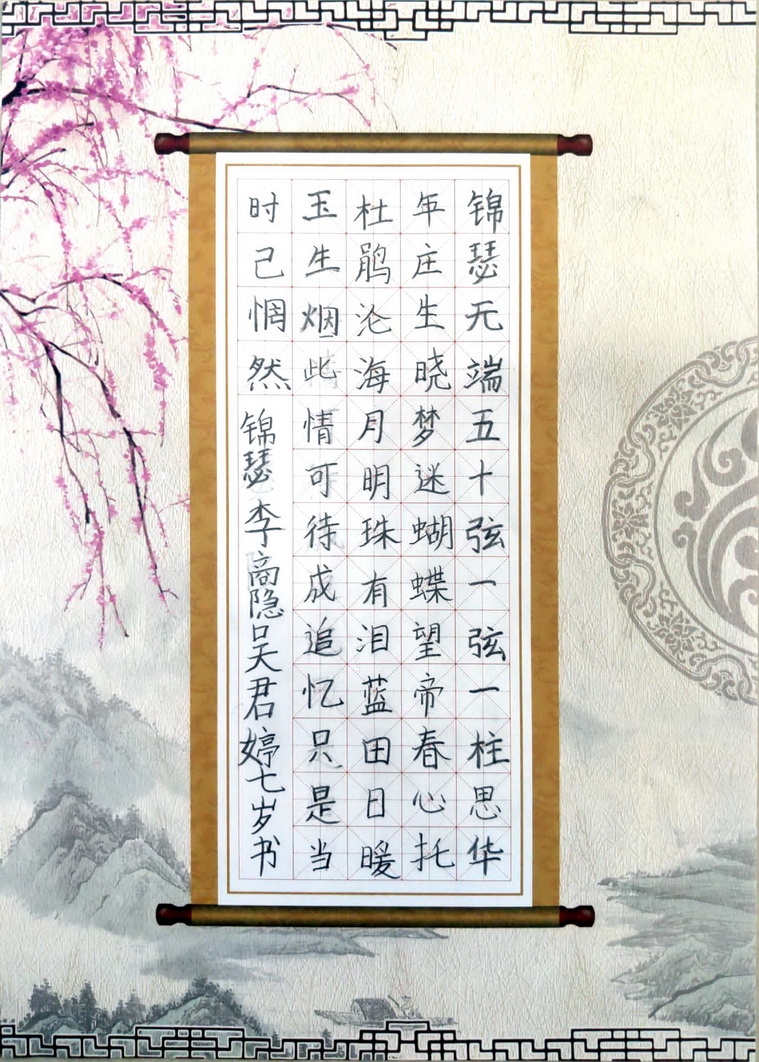 锦瑟无端五十弦一弦一柱思华
年庄生晓梦迷蝴蝶望帝春心托
杜鹃沧海月明珠有泪蓝田日暖
玉生烟此情可待成追忆只是当
时已惘然锦瑟李商隐吴君婷七岁书